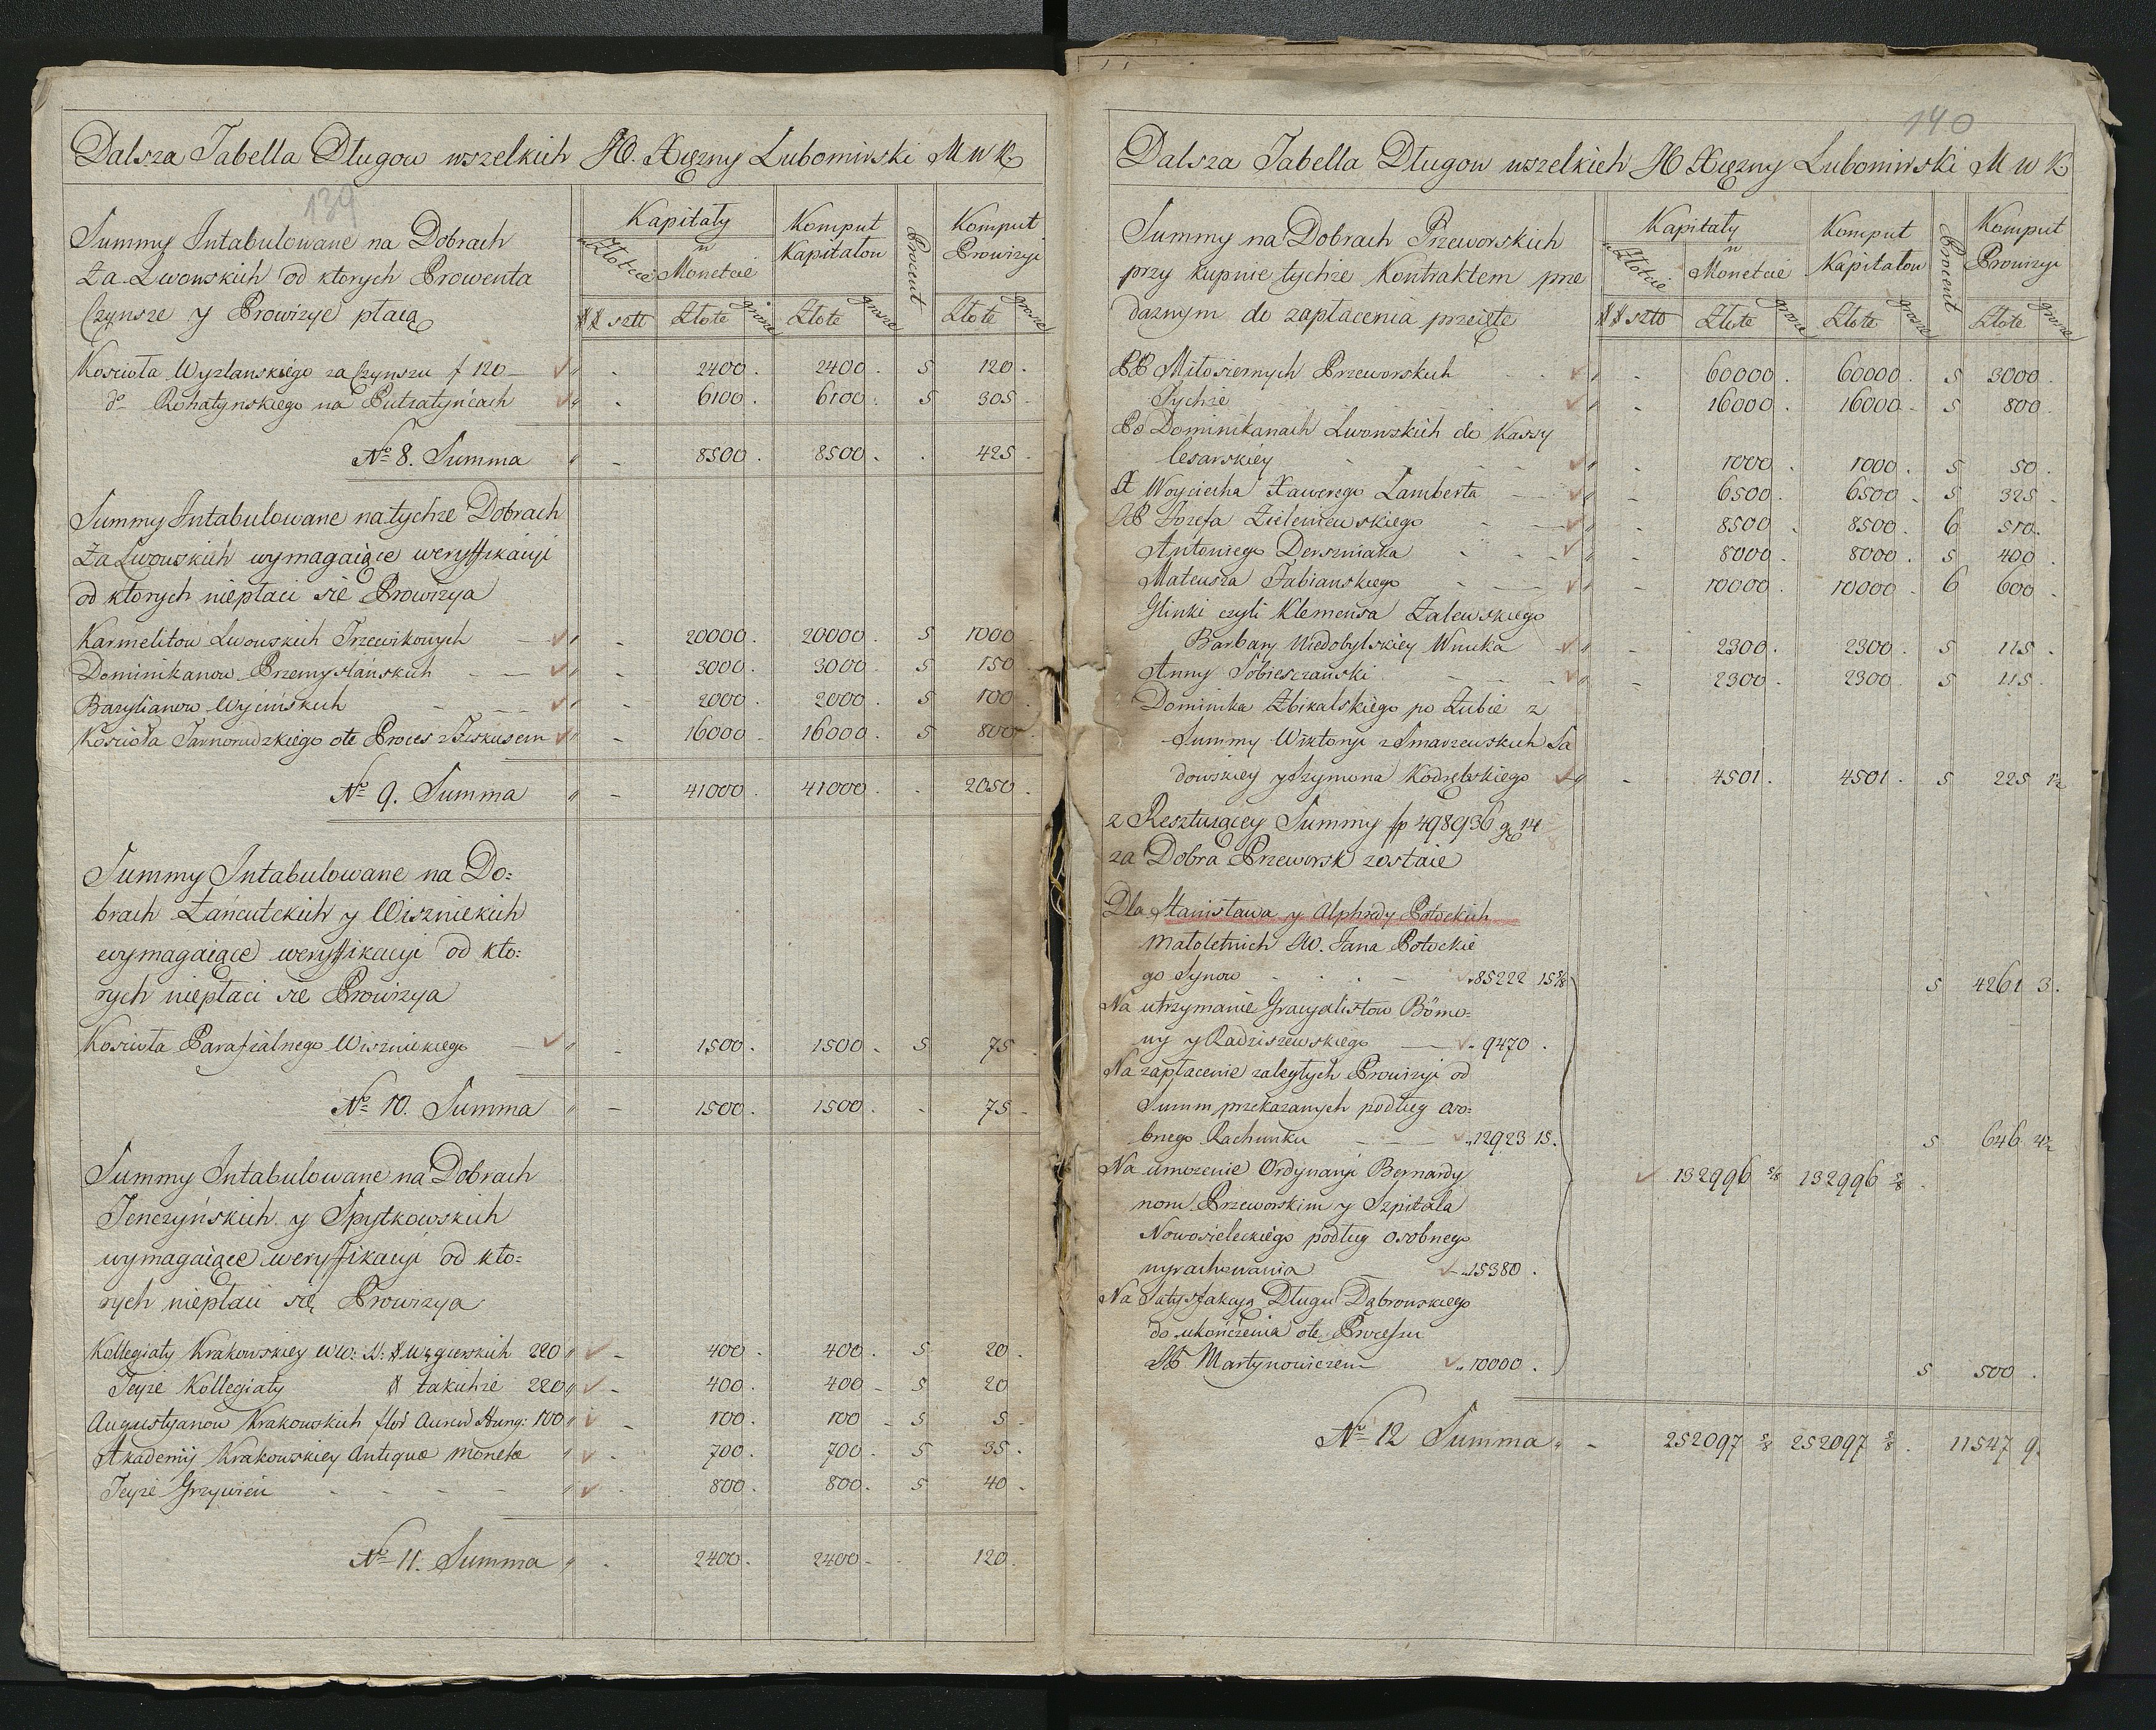 Dalsza Tabella Długow wszelkich JO. Xiężny Lubomirski M W K
139
Summy Intabulowane na Dobrach
Za Lwowskich od ktorych Prowenta
Czynsze y Prowizye płacą
Kapitały
w Złocie
w Monetcie
Komput Kapitałow
Procent
Komput Prowizyi
## szt Złote grosze Złote grosze Złote grosze
Koscioła Wyzlanskiego za Czynszu f 120 — " - 2400 . 2400 . 5 120 .
do Rohatynskiego na Putiatyńcach " - 6100 . 6100 . 5 305 -
No 8. Summa " - 8500 . 8500 . . 425 .
Summy Intabulowane na tychże Dobrach
Za Lwowskich wymagaiące weryffikacyi
od ktorych niepłaci się Prowizya
Karmelitow Lwowskich Trzewikowych — " - 20000 . 20000 . 5 1000 -
Dominikanow Przemyslańskich — " - 3000 . 3000 . 5 150 -
Bazylianow Wycińskich — " - 2000 . 2000 . 5 100 .
Kosciola Tarnorudzkiego ote Proces z Fiskusem " - 16000 - 16000 . 5 800 -
No 9. Summa " - 41000 . 41000 . . 2050 .
Summy Intabulowane na Do:
brach Łańcutckich y Wiszniekich
wymagaiące weryffikacyi od kto:
rych niepłaci się Prowizya
Kosciola Parafialnego Wiszniekiego — " - 1500 . 1500 . 5 75 .
No 10. Summa " - 1500 . 1500 . - 75 -
Summy Intabulowane na Dobrach
Tenczyńskich y Spytkowskich
wymagaiące weryffikacyi od kto:
rych niepłaci się Prowizya
Kollegiaty Krakowskiey WW: SS: # Węgierskich 220 " - 400 . 400 . 5 20 .
Teyze Kollegiaty # takichże 220 " - 400 . 400 - 5 20
Augustyanow Krakowskich flor Auror Hung: 100 " - 100 . 100 - 5 5 -
Akademij Krakowskiey Antiquæ monetæ " - 700 . 700 . 5 35 .
Teyze Grzywien - - - - " - 800 . 800 . 5 40 -
No 11. Summa " . 2400 . 2400 - . 120 .
140
Dalsza Tabella Długow wszelkich JO Xiężny Lubomirski M W K
Summy na Dobrach Przeworskich
przy kupnie tychże Kontraktem prze
daznym do zapłacenia przeięte
Kapitały
w Złocie
w Monetcie
Komput Kapitałow
Procent
Komput Prowizyi
## szt Złote grosze Złote grosze Złote grosze
BB Miłosiernych Przeworskich " - 60000 . 60000 . 5 3000 .
Tychże " - 16000 . 16000 - 5 800 .
Po Dominikanach Lwowskich do Kassy
Cesarskiey " - 1000 . 1000 . 5 50 .
X Woyciecha Xawerego Lamberta — " - 6500 . 6500 - 5 325 -
JP Jozefa Zieleniewskiego - " - 8500 . 8500 . 6 510 .
Antoniego Derszniaka - " - 8000 . 8000 . 5 400 .
Mateusza Fabianskiego - " - 10000 . 10000 . 6 600 .
Glinki czyli Klemensa Zalewskiego
Barbary Niedobylskiey Wnuka " - 2300 . 2300 . 5 115 .
Anny Sobiesczański " - 2300 . 2300 . 5 115 .
Dominika Zbikalskiego po Zubie z
Summy Wiktoryi z Smarzewskich Sa
dowskiey y Szymona Kodrębskiego " - 4501 . 4501 . 5 225 1½
z Resztuiącey Summy fp 498936 gr 14
za Dobra Przeworsk zostaie
Dla Stanisława y Alphredy Potockich
małoletnich JW. Jana Potockie
go Synow - . . - " 85222 15⅝ 5 4261 3 .
Na utrzymanie Gracyalistow Bömo:
wy y Radziszewskiego — " 9470 .
Na zapłacenie zaległych Prowizyi od
Summ przekazanych podług oso:
bnego Rachunku — " 12923 15 . 5 646 4½
Na umozenie Ordynaryi Bernardy
nom Przeworskim y Szpitala 132996 ⅝ 132996 ⅝ .
Nowosieleckiego podług osobnego
wyrachowania " 15380 .
Na Satysfakcyą Długu Dąbrowskiego
do ukończenia ote Processu
JP Martynowiczem " 10000 . 5 500 .
No 12 Summa " - 252097 ⅝ 252097 ⅝ . 11547 9 .